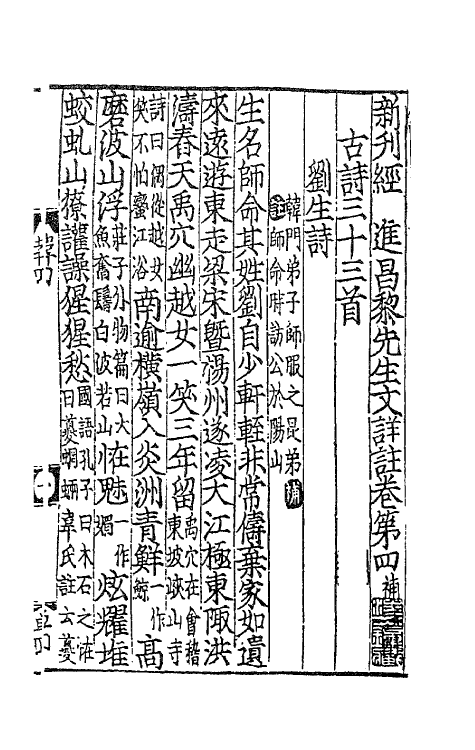 新刊經進昌黎先生文詳註卷第四
補
古詩三十三首
劉生詩
韓門弟子師服之昆弟
師命時訪公於陽山
補註
生名師命其姓劉自少軒輊非常儔棄家如遺
來遠遊東走梁宋暨揚州遂凌大江極東陬洪
濤舂天禹穴幽越女一笑三年留
禹穴在會稽
東坡峽山寺
詩曰偶從越女
笑不怕蠻江浴
南逾橫嶺入炎洲青鮮
一作
鯨
高
磨波山浮
莊子外物篇曰大
魚奮鬐白波若山
怪魅
一作
炫耀堆
蛟虬山㺐讙譟猩猩愁
國語孔子曰木石之
怪
曰夔蝄蜽韋氏註云夔
韓四
一